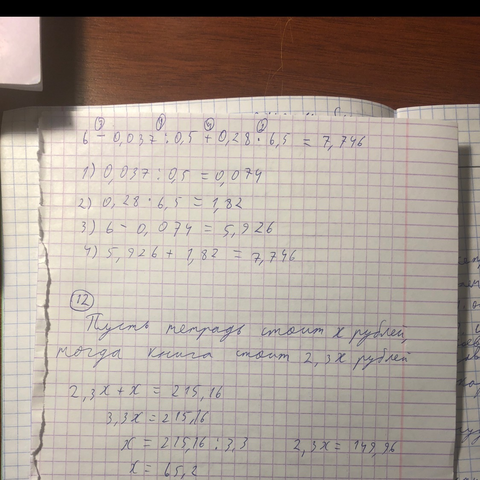 ③ ① ④ ②
6 - 0,037 : 0,5 + 0,28 · 6,5 = 7,746
1) 0,037 : 0,5 = 0,074
2) 0,28 · 6,5 = 1,82
3) 6 - 0,074 = 5,926
4) 5,926 + 1,82 = 7,746
12
Пусть тетрадь стоит x рублей,
тогда книга стоит 2,3x рублей
2,3x + x = 215,16
3,3x = 215,16
x = 215,16 : 3,3 2,3x = 149,96
x = 65,2